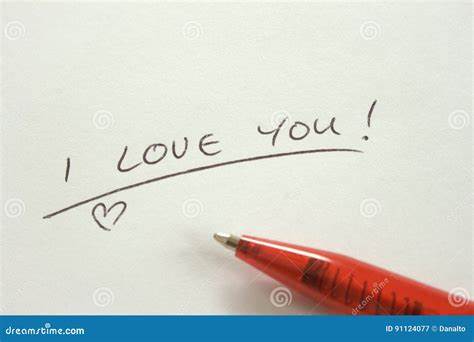 I LOVE YOU!
dreamstime.com
ID 91124077 © Danalto